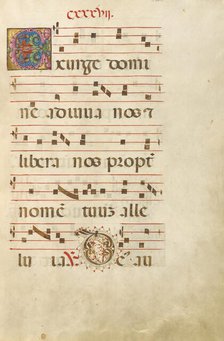 cxxxvii.
Exurge domi
ne adiuva nos ⁊
libera nos propt̄
nomē tuuȝ alle
luia. ℣ Deau